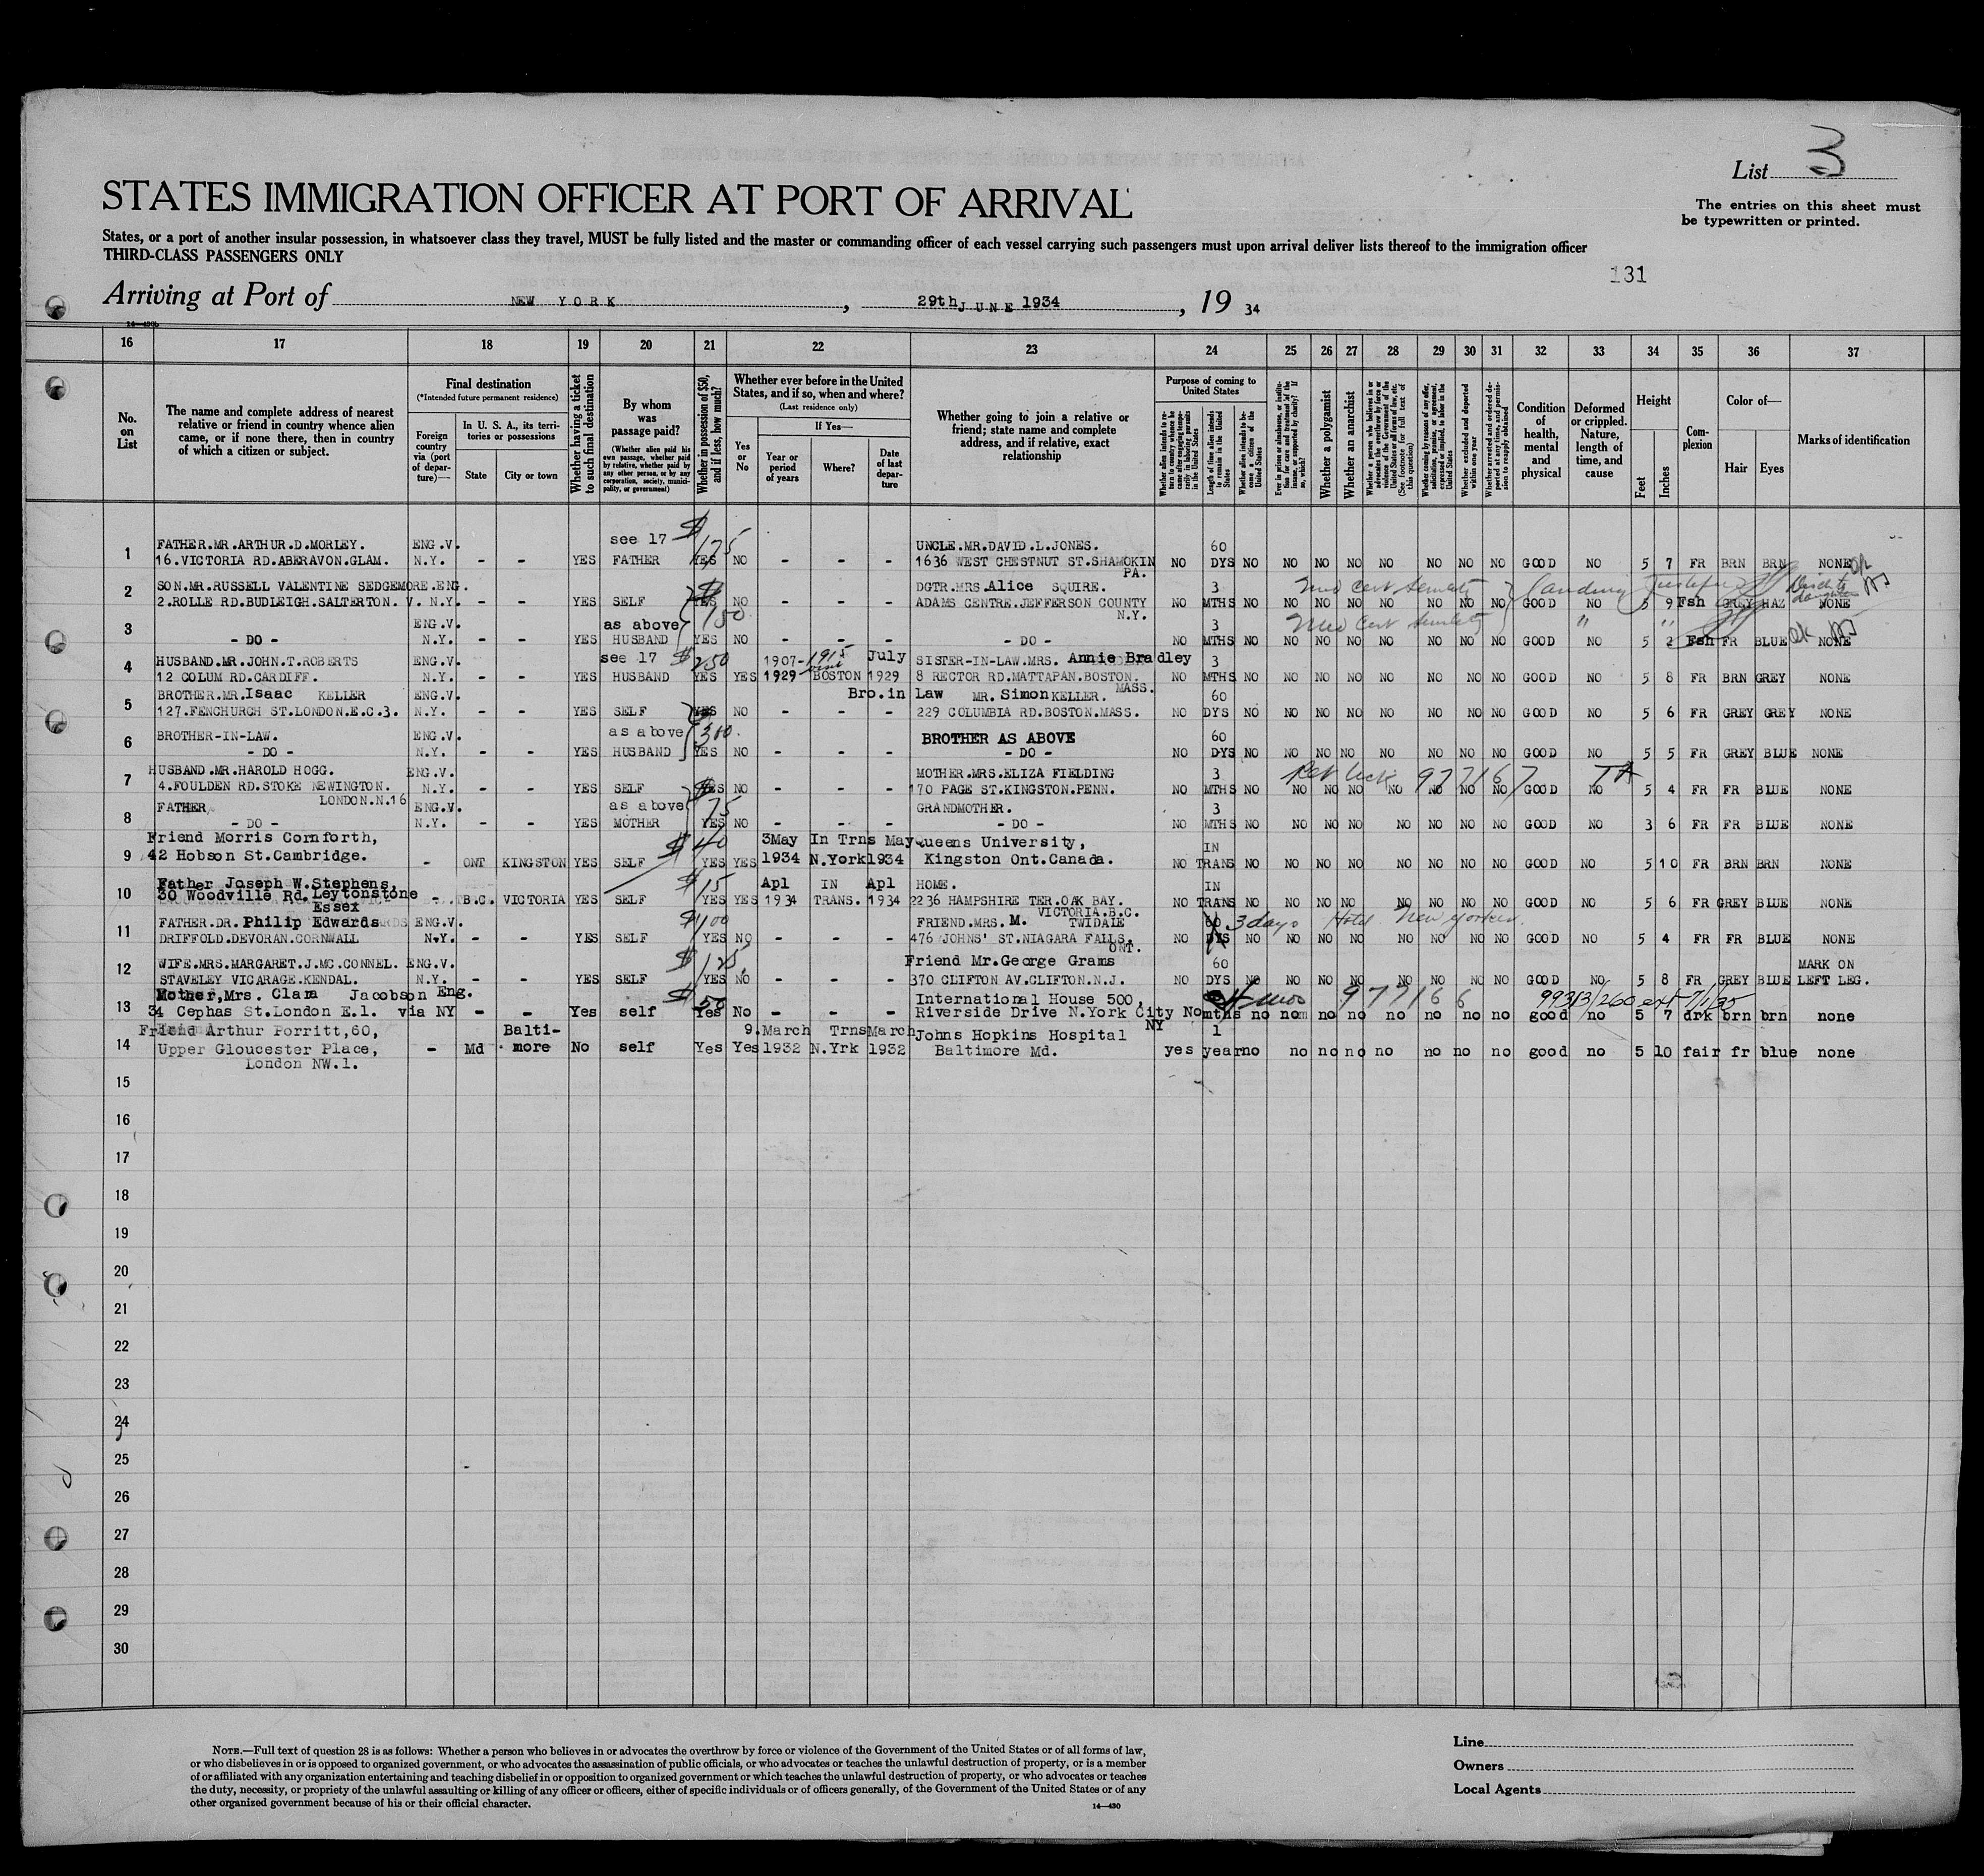 List 3
STATES IMMIGRATION OFFICER AT PORT OF ARRIVAL
The entries on this sheet must be typewritten or printed.
States, or a port of another insular possession, in whatsoever class they travel, MUST be fully listed and the master or commanding officer of each vessel carrying such passengers must upon arrival deliver lists thereof to the immigration officer
THIRD-CLASS PASSENGERS ONLY
131
Arriving at Port of NEW YORK, 29th JUNE 1934, 19 34
16 17 18 19 20 21 22 23 24 25 26 27 28 29 30 31 32 33 34 35 36 37
No. on List
The name and complete address of nearest relative or friend in country whence alien came, or if none there, then in country of which a citizen or subject.
Final destination
(*Intended future permanent residence)
Foreign country via (port of departure)—
In U. S. A., its territories or possessions
State
City or town
Whether having a ticket to such final destination
By whom was passage paid?
(Whether alien paid his own passage, whether paid by relative, whether paid by any other person, or by any corporation, society, municipality, or government)
Whether in possession of $50, and if less, how much?
Whether ever before in the United States, and if so, when and where?
(Last residence only)
Yes or No
If Yes—
Year or period of years
Where?
Date of last departure
Whether going to join a relative or friend; state name and complete address, and if relative, exact relationship
Purpose of coming to United States
Length of time alien intends to remain in the United States
Whether alien intends to become a citizen of the United States
Whether a polygamist
Whether an anarchist
Condition of health, mental and physical
Deformed or crippled. Nature, length of time, and cause
Height
Feet
Inches
Complexion
Color of—
Hair
Eyes
Marks of identification
1 FATHER.MR.ARTHUR.D.MORLEY. ENG.V. see 17 $ 175 UNCLE.MR.DAVID.L.JONES. 60
16.VICTORIA RD.ABERAVON.GLAM. N.Y. - - YES FATHER YES NO - - - 1636 WEST CHESTNUT ST.SHAMOKIN PA. NO DYS NO NO NO NO NO NO NO NO GOOD NO 5 7 FR BRN BRN NONE
2 SON.MR.RUSSELL VALENTINE SEDGEMORE.ENG. DGTR.MRS.Alice SQUIRE. 3
2.ROLLE RD.BUDLEIGH.SALTERTON. V. N.Y. - - YES SELF YES NO - - - ADAMS CENTRE.JEFFERSON COUNTY N.Y. NO MTHS NO NO NO NO NO NO NO NO GOOD NO 5 9 Fsh GREY HAZ NONE
3 ENG.V. as above 150 3
- DO - N.Y. - - YES HUSBAND YES NO - - - - DO - NO MTHS NO NO NO NO NO NO NO NO GOOD NO 5 2 Fsh FR BLUE NONE
4 HUSBAND.MR.JOHN.T.ROBERTS ENG.V. see 17 $ 250 1907- 1915 July SISTER-IN-LAW.MRS. Annie Bradley 3
12 COLUM RD.CARDIFF. N.Y. - - YES HUSBAND YES YES 1929 BOSTON 1929 8 RECTOR RD.MATTAPAN.BOSTON. MASS. NO MTHS NO NO NO NO NO NO NO NO GOOD NO 5 8 FR BRN GREY NONE
5 BROTHER.MR.Isaac KELLER ENG.V. Bro.in Law MR. Simon KELLER. 60
127.FENCHURCH ST.LONDON.E.C.3. N.Y. - - YES SELF YES NO - - - 229 COLUMBIA RD.BOSTON.MASS. NO DYS NO NO NO NO NO NO NO NO GOOD NO 5 6 FR GREY GREY NONE
6 BROTHER-IN-LAW. ENG.V. as above 300. BROTHER AS ABOVE 60
- DO - N.Y. - - YES HUSBAND YES NO - - - - DO - NO DYS NO NO NO NO NO NO NO NO GOOD NO 5 5 FR GREY BLUE NONE
7 HUSBAND.MR.HAROLD HOGG. ENG.V. MOTHER.MRS.ELIZA FIELDING 3 977167
4.FOULDEN RD.STOKE NEWINGTON. LONDON.N.16 N.Y. - - YES SELF YES NO - - - 170 PAGE ST.KINGSTON.PENN. NO MTHS NO NO NO NO NO NO NO NO GOOD NO 5 4 FR FR BLUE NONE
8 FATHER ENG.V. as above 75 GRANDMOTHER. 3
- DO - N.Y. - - YES MOTHER YES NO - - - - DO - NO MTHS NO NO NO NO NO NO NO NO GOOD NO 3 6 FR FR BLUE NONE
9 Friend Morris Cornforth, $ 40 3May In Trns May Queens University, IN
42 Hobson St.Cambridge. - ONT KINGSTON YES SELF YES YES 1934 N.York 1934 Kingston Ont.Canada. NO TRANS NO NO NO NO NO NO NO NO GOOD NO 5 10 FR BRN BRN NONE
10 Father Joseph W.Stephens, $ 15 Apl IN Apl HOME. IN
30 Woodville Rd.Leytonstone Essex - B.C. VICTORIA YES SELF YES YES 1934 TRANS. 1934 2236 HAMPSHIRE TER.OAK BAY. VICTORIA.B.C. NO TRANS NO NO NO NO NO NO NO NO GOOD NO 5 6 FR GREY BLUE NONE
11 FATHER.DR.Philip Edwards ENG.V. $ 100 FRIEND.MRS. M. TWIDALE 60 3 days Hotel New Yorker.
DRIFFOLD.DEVORAN.CORNWALL N.Y. - - YES SELF YES NO - - - 476 JOHNS' ST.NIAGARA FALLS. ONT. NO DYS NO NO NO NO NO NO NO NO GOOD NO 5 4 FR FR BLUE NONE
12 WIFE.MRS.MARGARET.J.MC.CONNEL. ENG.V. $ 125. Friend Mr.George Grams 60 MARK ON
STAVELEY VICARAGE.KENDAL. N.Y. - - YES SELF YES NO - - - 370 CLIFTON AV.CLIFTON.N.J. NO DYS NO NO NO NO NO NO NO NO GOOD NO 5 8 FR GREY BLUE LEFT LEG.
13 Mother,Mrs. Clara Jacobson Eng. $ 50 International House 500, 4 mos 977166
34 Cephas St.London E.1. via NY - - Yes self Yes No - - - Riverside Drive N.York City NY No mths no no no no no no no no good no 5 7 drk brn brn none
14 Friend Arthur Porritt,60, Balti- 9.March Trns March Johns Hopkins Hospital 1
Upper Gloucester Place, London NW.1. - Md more No self Yes Yes 1932 N.Yrk 1932 Baltimore Md. yes year no no no no no no no no good no 5 10 fair fr blue none
15
16
17
18
19
20
21
22
23
24
25
26
27
28
29
30
NOTE.—Full text of question 28 is as follows: Whether a person who believes in or advocates the overthrow by force or violence of the Government of the United States or of all forms of law,
or who disbelieves in or is opposed to organized government, or who advocates the assassination of public officials, or who advocates or teaches the unlawful destruction of property, or is a member
of or affiliated with any organization entertaining and teaching disbelief in or opposition to organized government or which teaches the unlawful destruction of property, or who advocates or teaches
the duty, necessity, or propriety of the unlawful assaulting or killing of any officer or officers, either of specific individuals or of officers generally, of the Government of the United States or of any
other organized government because of his or their official character.
14—430
Line
Owners
Local Agents